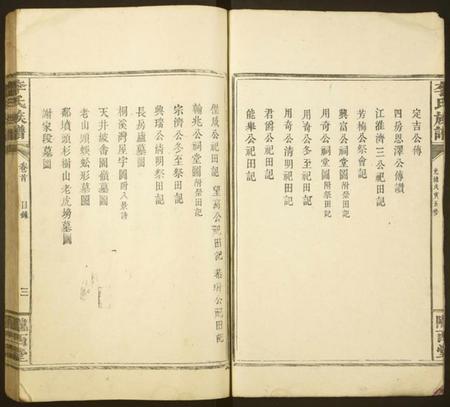 定吉公傳
四房恩澤公傳讚
江淮濟三公祀田記
芳梅公祭會記
興富公祠堂圖附祭田記
用奇公祠堂圖附祭田記
用奇公冬至祀田記
用奇公清明祀田記
君爵公祀田記
能舉公祀田記
李氏族譜
光緒戊寅五修
隴西堂
李氏族譜
卷首
目錄
三
隴西堂
公祀田記
公祀田記
公祀田記
翰兆公祠堂圖附祭田記
宗濟公冬至祭田記
興瑞公清明祭田記
長房廬墓圖
桐溪灣屋宇圖附八景詩
天井坡畨園嶺墓圖
老山頭蜈蚣形墓圖
鄱墳頭杉樹山老虎塝墓圖
謝家段墓圖